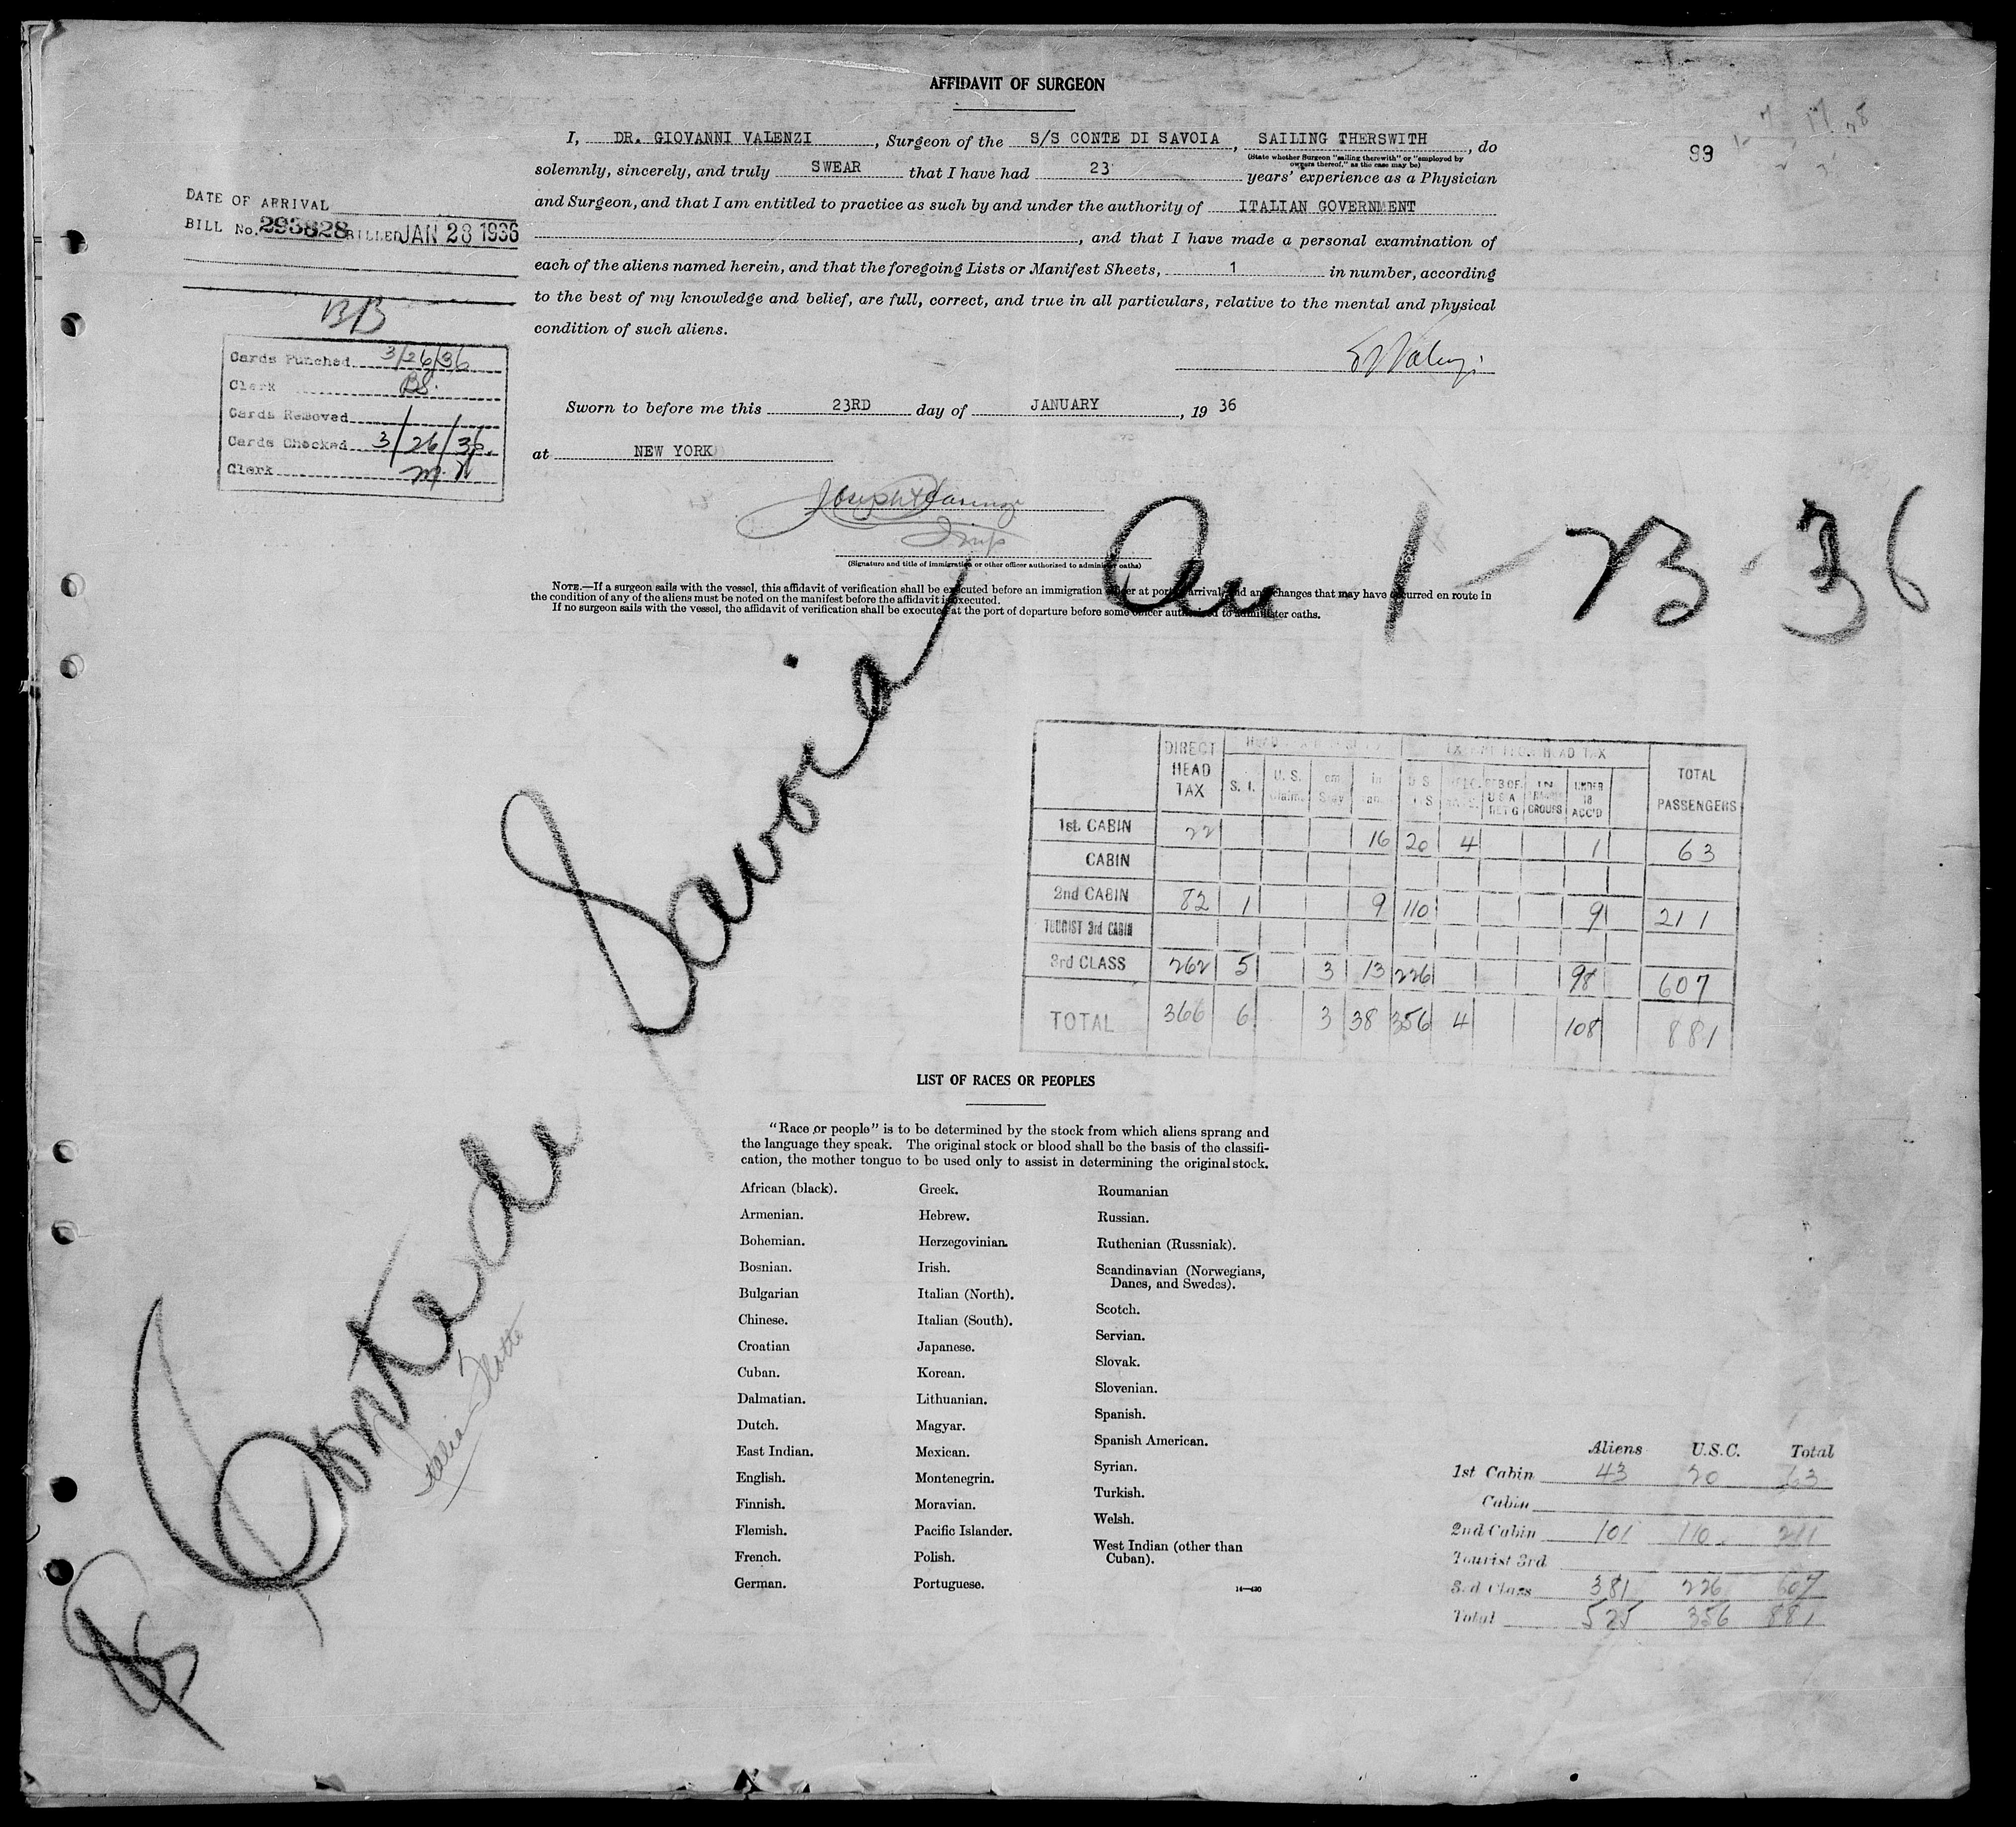 AFFIDAVIT OF SURGEON
I, DR. GIOVANNI VALENZI, Surgeon of the S/S CONTE DI SAVOIA, SAILING THERSWITH, do
(State whether Surgeon "sailing therewith" or "employed by
owners thereof," as the case may be)
solemnly, sincerely, and truly SWEAR that I have had 23 years' experience as a Physician
and Surgeon, and that I am entitled to practice as such by and under the authority of ITALIAN GOVERNMENT
, and that I have made a personal examination of
each of the aliens named herein, and that the foregoing Lists or Manifest Sheets, 1 in number, according
to the best of my knowledge and belief, are full, correct, and true in all particulars, relative to the mental and physical
condition of such aliens.
99
DATE OF ARRIVAL
BILL No. 293828 BILLED JAN 28 1936
BB
Cards Punched 3/26/36
Clerk BS.
Cards Removed
Cards Checked 3/26/36.
Clerk M.N
Sworn to before me this 23RD day of JANUARY, 19 36
at NEW YORK
(Signature and title of immigration or other officer authorized to administer oaths)
NOTE.—If a surgeon sails with the vessel, this affidavit of verification shall be executed before an immigration officer at port of arrival, and any changes that may have occurred en route in
the condition of any of the aliens must be noted on the manifest before the affidavit is executed.
If no surgeon sails with the vessel, the affidavit of verification shall be executed at the port of departure before some officer authorized to administer oaths.
1-23-36
SS Conte di Savoia
DIRECT HEAD TAX S. I. U. S. EXEMPT FROM HEAD TAX UNDER 18 ACC'D TOTAL PASSENGERS
1st. CABIN 22 16 20 4 1 63
CABIN
2nd CABIN 82 1 9 110 9 211
TOURIST 3rd CABIN
3rd CLASS 262 5 3 13 226 98 607
TOTAL 366 6 3 38 356 4 108 881
LIST OF RACES OR PEOPLES
"Race or people" is to be determined by the stock from which aliens sprang and
the language they speak. The original stock or blood shall be the basis of the classifi-
cation, the mother tongue to be used only to assist in determining the original stock.
African (black).
Armenian.
Bohemian.
Bosnian.
Bulgarian
Chinese.
Croatian
Cuban.
Dalmatian.
Dutch.
East Indian.
English.
Finnish.
Flemish.
French.
German.
Greek.
Hebrew.
Herzegovinian.
Irish.
Italian (North).
Italian (South).
Japanese.
Korean.
Lithuanian.
Magyar.
Mexican.
Montenegrin.
Moravian.
Pacific Islander.
Polish.
Portuguese.
Roumanian
Russian.
Ruthenian (Russniak).
Scandinavian (Norwegians,
Danes, and Swedes).
Scotch.
Servian.
Slovak.
Slovenian.
Spanish.
Spanish American.
Syrian.
Turkish.
Welsh.
West Indian (other than
Cuban).
14—430
Aliens U.S.C. Total
1st Cabin 43 20 63
Cabin
2nd Cabin 101 110 211
Tourist 3rd
3rd Class 381 226 607
Total 525 356 881